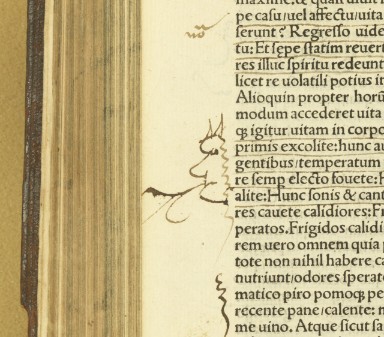 maxime. & quan
pe casu/uel affectu/uita
serunt? Regresso uide
tu: Et sepe statim reuert
res illuc spiritu redeunt
licet re uolatili potius it
Alioquin propter horū
modum accederet uita
q igitur uitam in corpo
primis excolite: hunc au
gentibus/temperatum
re semp electo fouete: H
alite: Hunc sonis & cant
res cauete calidiores: Fr
peratos. Frigidos calidi
rem uero omnem quia p
tote non nihil habere ca
nutriunt/odores sperat
matico piro pomoq; pe
recente pane/calente: n
me uino. Atque sicut sa